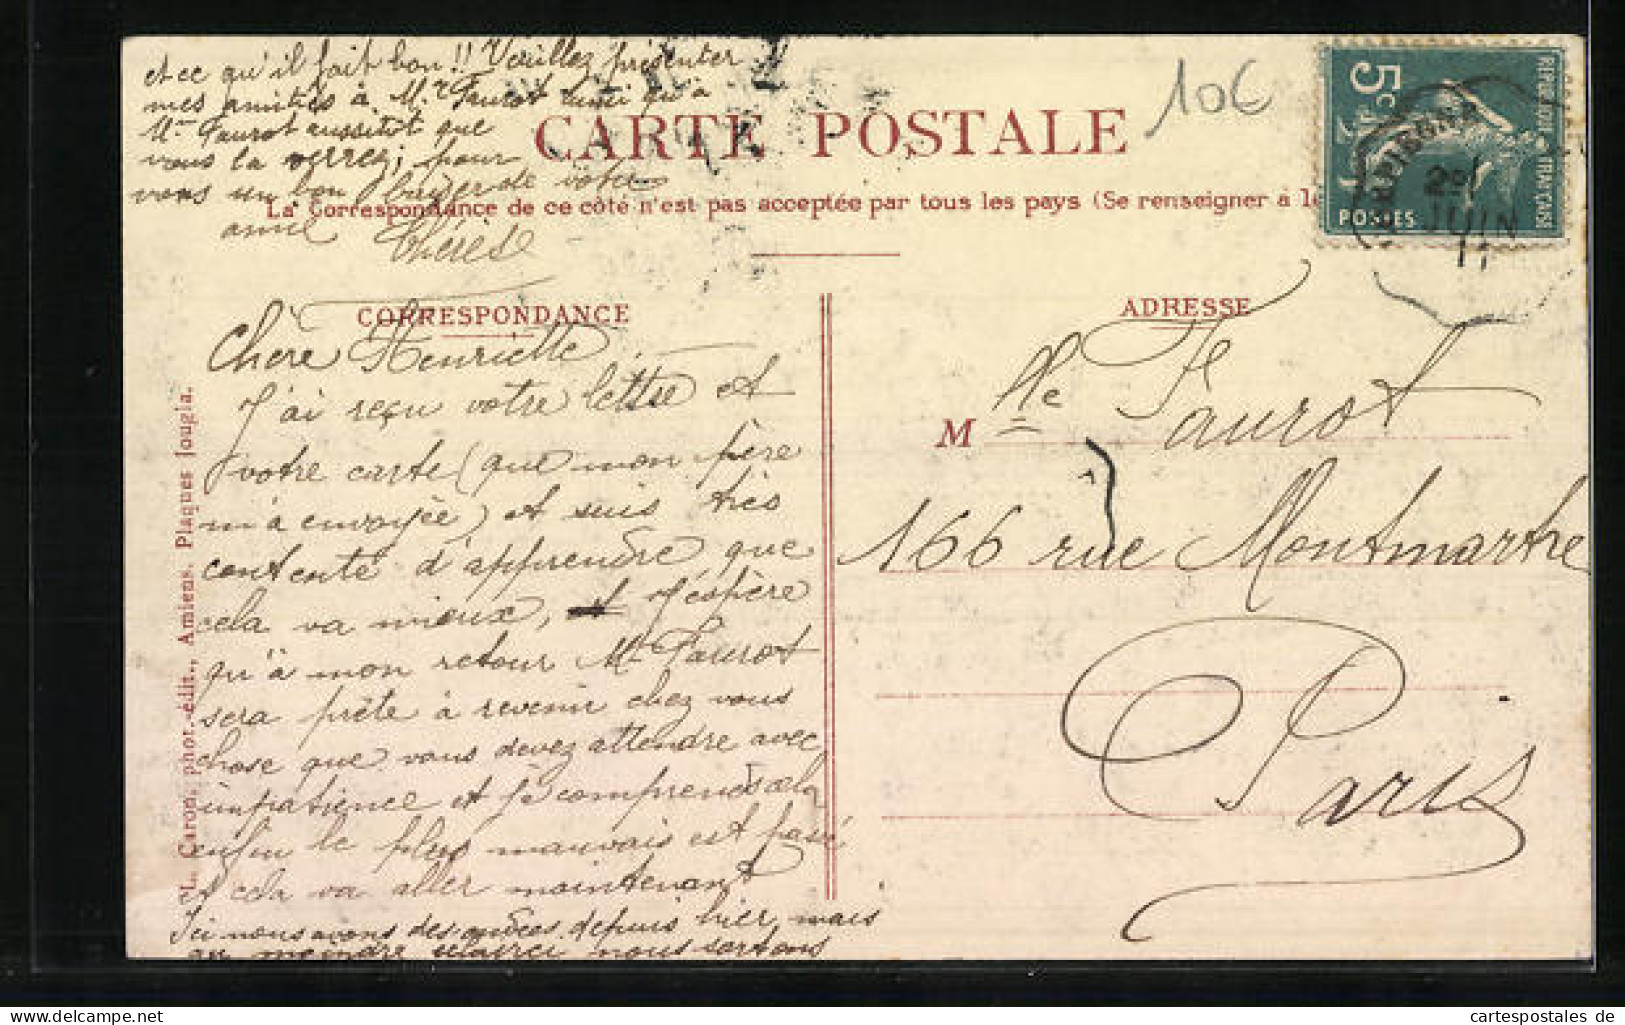 et ce qu'il fait bon !! Veuillez présenter
mes amitiés à M.r Faurot ainsi qu'à
M.e Faurot aussitôt que
vous la verrez ; pour
vous un bon baiser de votre
amie Thérèse
10€
CARTE POSTALE
La Correspondance de ce côté n'est pas acceptée par tous les pays (Se renseigner à la
5c
REPUBLIQUE FRANÇAISE
POSTES
JUIN
CORRESPONDANCE
Chère Henriette,
J'ai reçu votre lettre et
votre carte (que mon père
m'a envoyée) et suis très
contente d'apprendre que
cela va mieux, et j'espère
qu'à mon retour Me Faurot
sera prête à revenir chez vous
chose que vous devez attendre avec
impatience et je comprends cela
enfin le plus mauvais est passé
et cela va aller maintenant
Ici nous avons des ondées depuis hier, mais
au moindre éclairci nous sortons
ADRESSE
M lle Faurot
166 rue Montmartre
Paris
L. Caron, phot.-édit., Amiens. Plaques Jougla.
cartespostales de